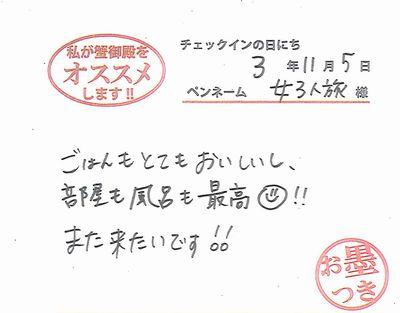 私が蟹御殿を
オススメ
します!!
チェックインの日にち
3年11月5日
ペンネーム 女3人旅 様
ごはんもとてもおいしいし、
部屋も風呂も最高☺!!
また来たいです!!
お墨
つき